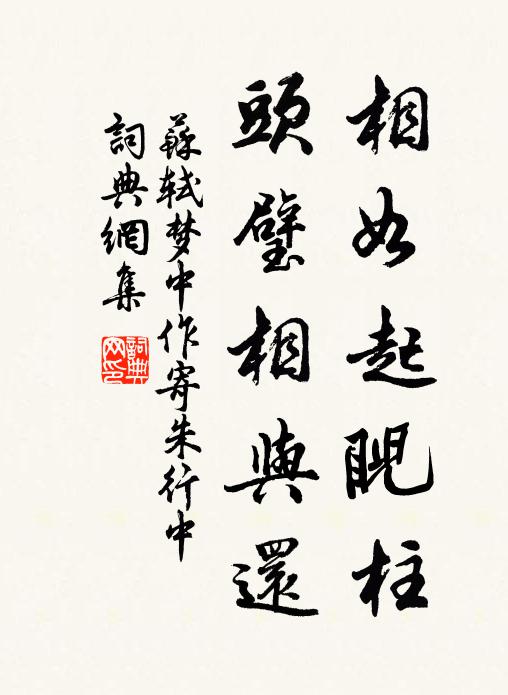 相如起睨柱
頭璧相與還
蘇軾梦中作寄朱行中
詞典網集
詞典網印